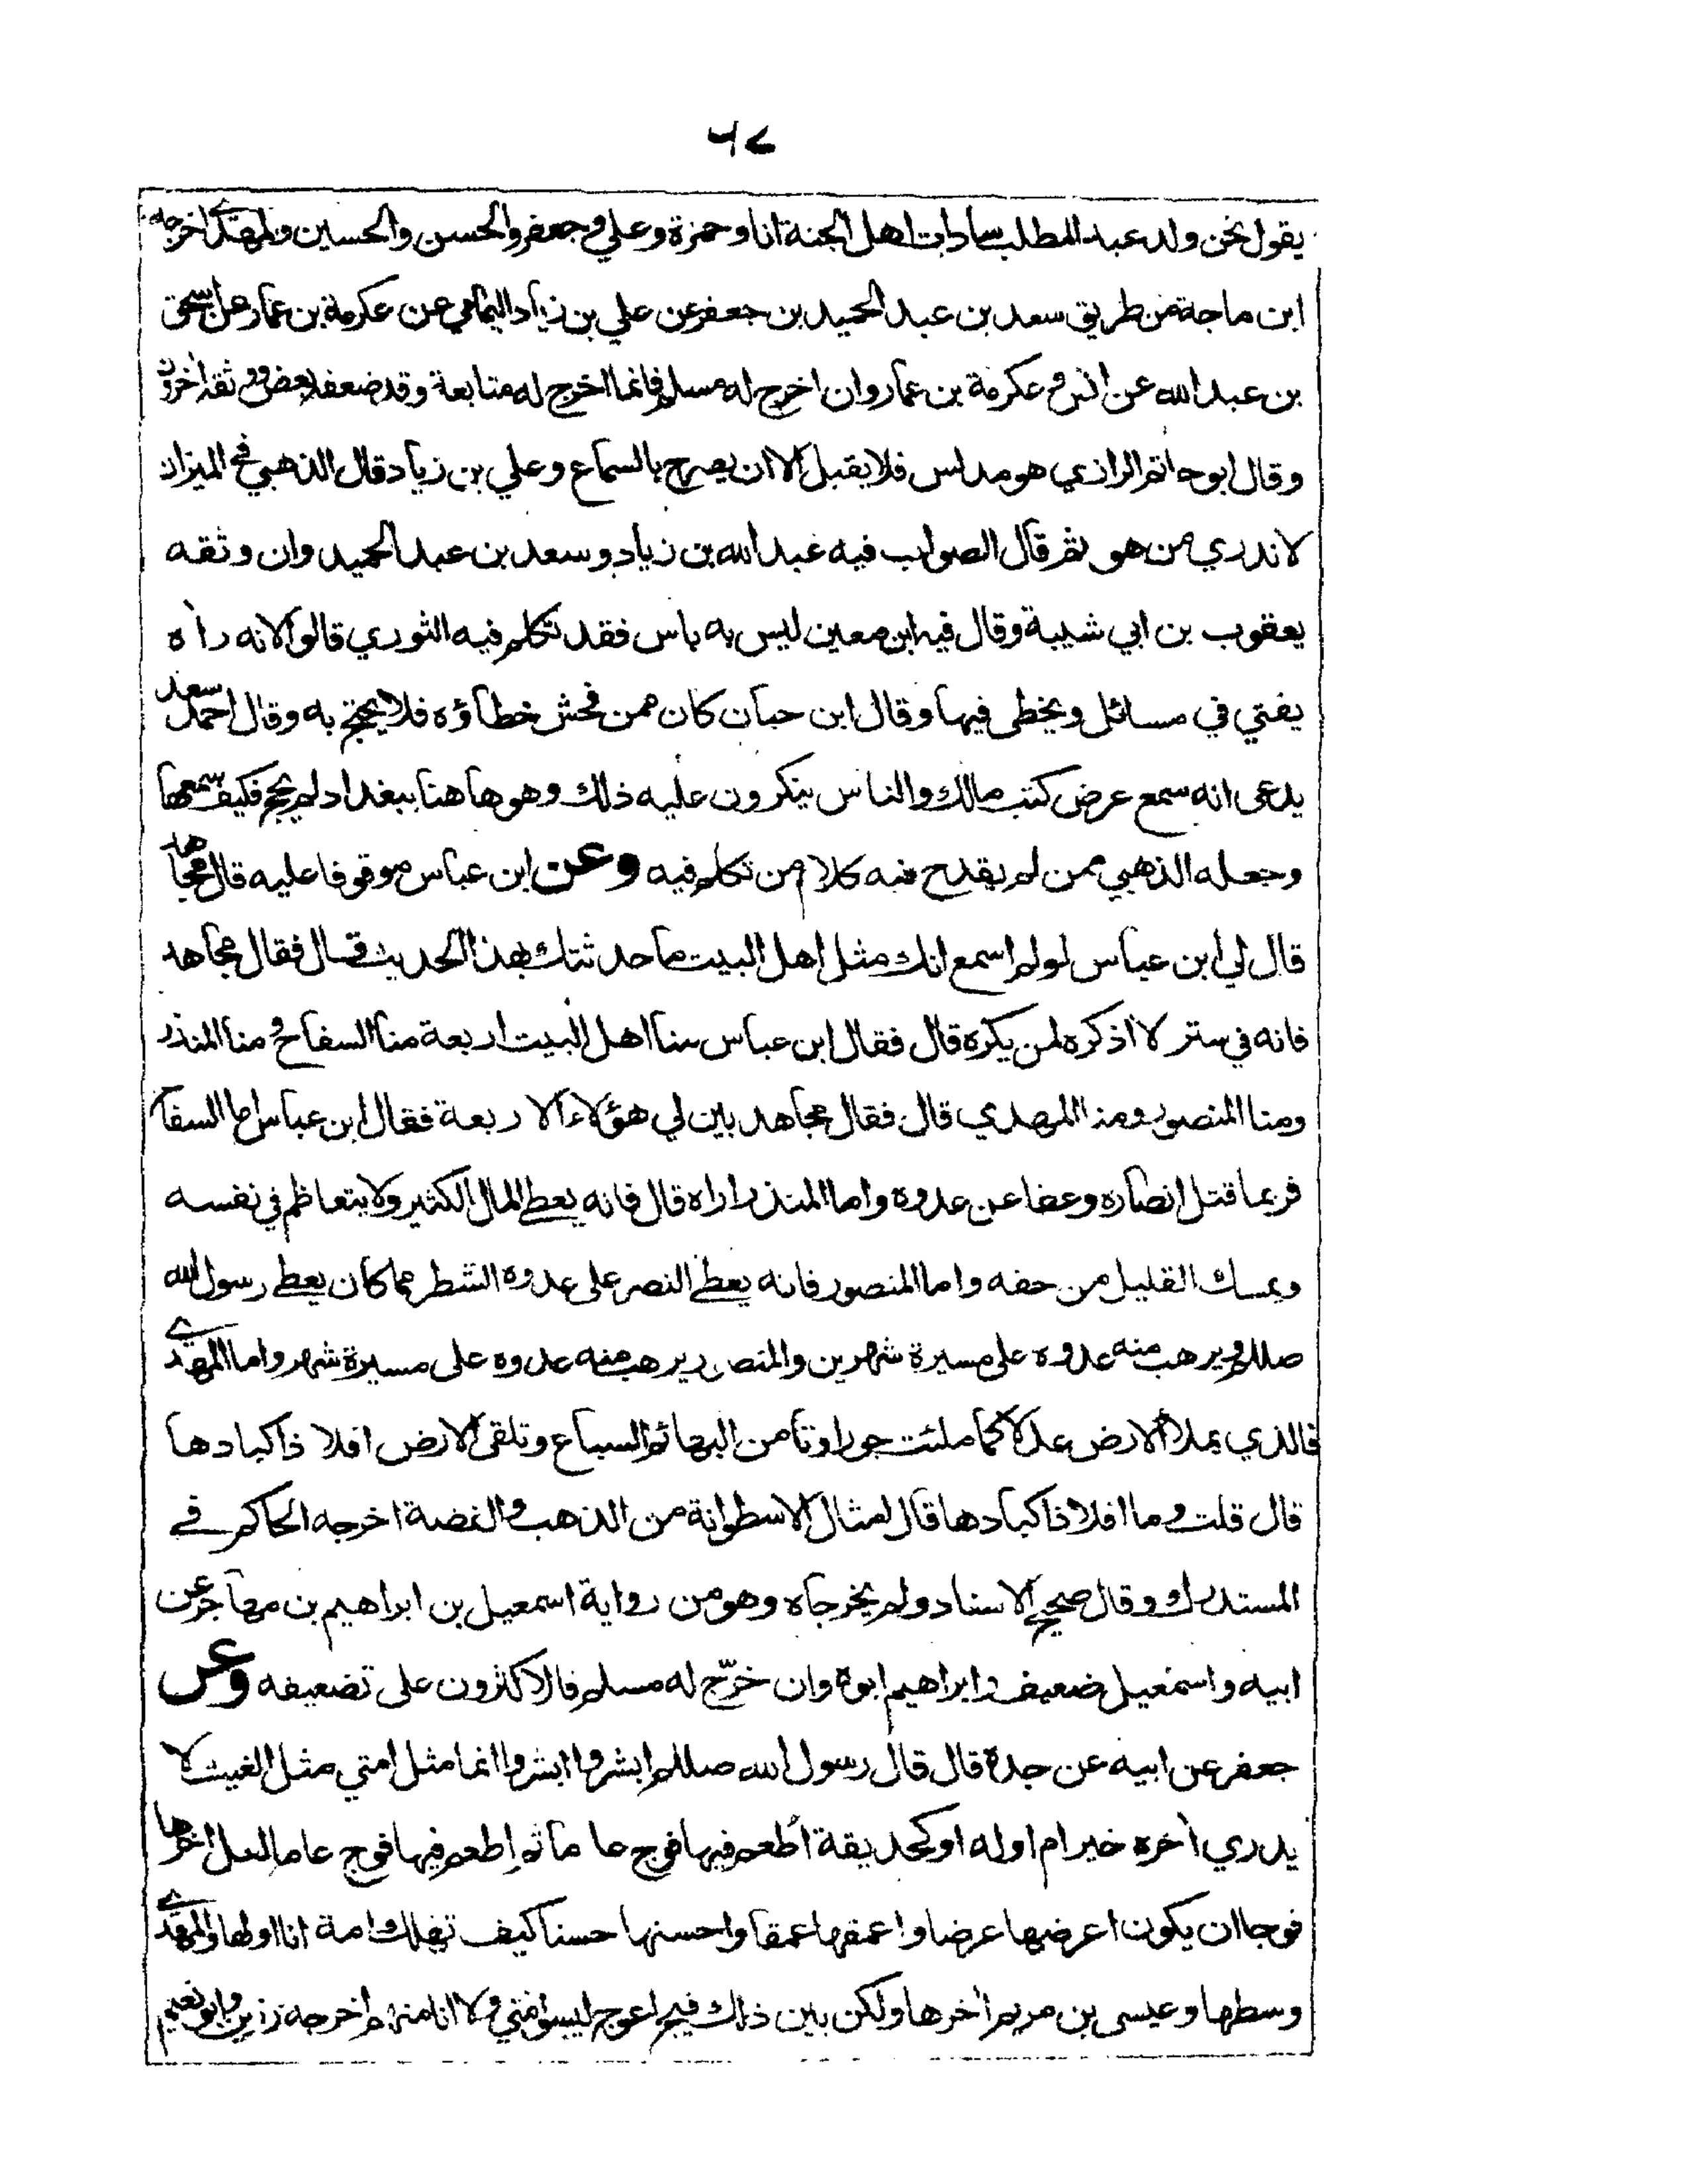 ٦٧
يقول نحن ولد عبد المطلب سادات اهل الجنة انا وحمزة وعلي وجعفر والحسن والحسين والمهدي اخرجه
ابن ماجة من طريق سعد بن عبد الحميد بن جعفر عن علي بن زياد اليمامي عن عكرمة بن عمار عن اسحق
بن عبد الله عن انس و عكرمة بن عمار وان اخرج له مسلم فانما اخرج له متابعة وقد ضعفه بعض ووثقه اخرون
وقال ابو حاتم الرازي هو مدلس فلا يقبل الا ان يصرح بالسماع وعلي بن زياد قال الذهبي في الميزان
لا ندري من هو ثم قال الصواب فيه عبد الله بن زياد وسعد بن عبد الحميد وان وثقه
يعقوب بن ابي شيبة وقال فيه ابن معين ليس به باس فقد تكلم فيه الثوري قالوا لانه راه
يفتي في مسائل ويخطى فيها وقال ابن حبان كان ممن فحش خطاؤه فلا يحتج به وقال احمد سعد
يدعى انه سمع عرض كتب مالك والناس ينكرون عليه ذلك وهو هاهنا ببغداد لم يحج فكيف سمعها
وجعله الذهبي ممن لم يقدح فيه كلام من تكلم فيه وعن ابن عباس موقوفا عليه قال مجاهد
قال لي ابن عباس لو لم اسمع انك مثل اهل البيت ما حدثتك بهذا الحديث قال فقال مجاهد
فانه في ستر لا اذكره لمن يكره قال فقال ابن عباس منا اهل البيت اربعة منا السفاح و منا المنذر
ومنا المنصور ومنا المهدي قال فقال مجاهد بين لي هؤلاء الاربعة فقال ابن عباس اما السفاح
فربما قتل انصاره وعفا عن عدوه واما المنذر اراه قال فانه يعطي المال الكثير ولا يتعاظم في نفسه
ويمسك القليل من حقه واما المنصور فانه يعطي النصر على عدوه الشطر مما كان يعطي رسول الله
صللم ويرهب منه عدوه على مسيرة شهرين والمنصور يرهب منه عدوه على مسيرة شهر واما المهدي
فالذي يملأ الارض عدلا كما ملئت جورا وتامن البهائم السباع وتلقى الارض افلاذ اكبادها
قال قلت وما افلاذ اكبادها قال امثال الاسطوانة من الذهب والفضة اخرجه الحاكم في
المستدرك وقال صحيح الاسناد ولم يخرجاه وهو من رواية اسمعيل بن ابراهيم بن مهاجر عن
ابيه واسمعيل ضعيف وابراهيم ابوه وان خرّج له مسلم فالاكثرون على تضعيفه وعن
جعفر عن ابيه عن جده قال قال رسول الله صللم ابشروا ابشروا انما مثل امتي مثل الغيث لا
يدري اخره خير ام اوله او كحديقة اُطعم فيها فوج عاما ثم اطعم فيها فوج عاما لعل اخرها
فوجا ان يكون اعرضها عرضا واعمقها عمقا واحسنها حسنا كيف تهلك امة انا اولها والمهدي
وسطها وعيسى بن مريم اخرها ولكن بين ذلك فيج اعوج ليسوا مني ولا انا منهم اخرجه رزين وابو نعيم